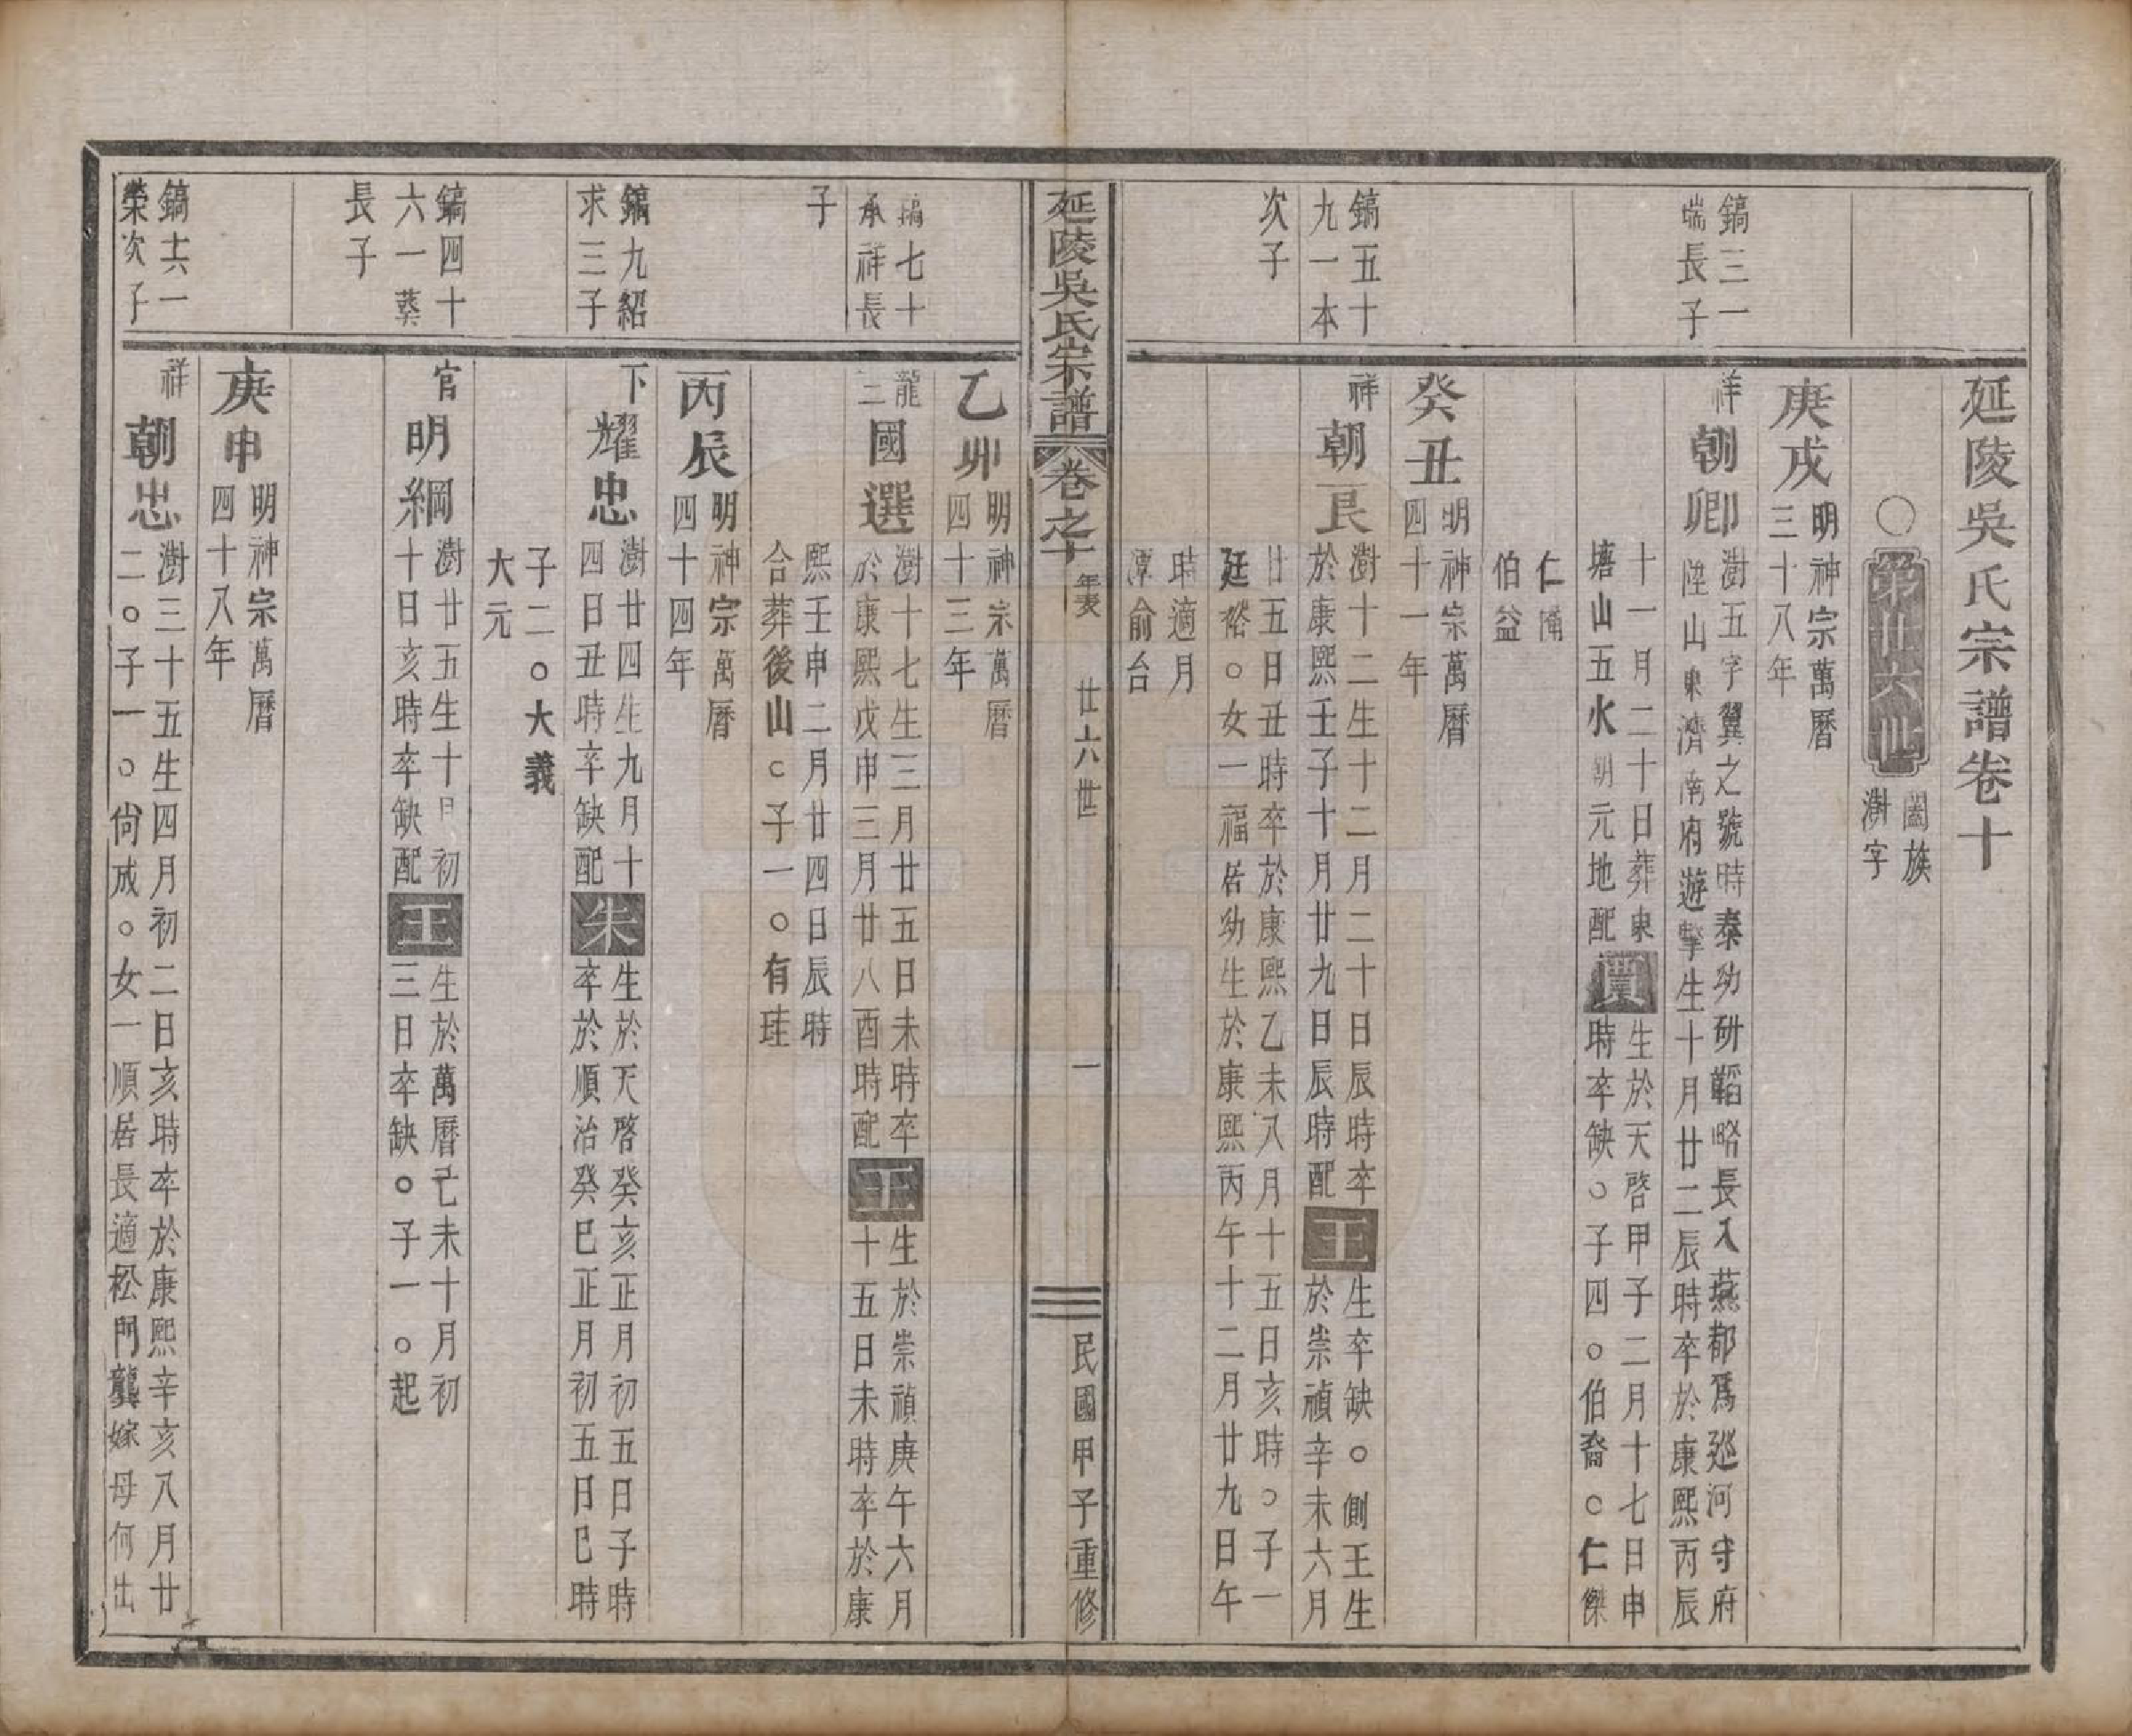 延陵吳氏宗譜卷十
○第廿六世
闔族
澍字
庚戌
明神宗萬曆
三十八年
鎬三一
端長子
祥
朝卿
澍五字翼之號時泰幼研韜略長入燕都爲巡河守府
陞山東濟南府遊擊生十月廿二辰時卒於康熙丙辰
十一月二十日葬東
塘山五水朝元地配
賈
生於天啓甲子二月十七日申
時卒缺○子四○伯裔○仁傑
仁
伯益
癸丑
明神宗萬曆
四十一年
鎬五十
九一本
次子
祥
朝艮
澍十二生十二月二十日辰時卒
於康熙壬子十月廿九日辰時配
王
生卒缺○側王生
於崇禎辛未六月
廿五日丑時卒於康熙乙未八月十五日亥時○子一
廷裕○女一福居幼生於康熙丙午十二月廿九日午
時適月
潭俞台
延陵吳氏宗譜
卷之十
年表
廿六世
一
民國甲子重修
乙卯
明神宗萬曆
四十三年
鎬七十
承祥長
子
龍
三
國選
澍十七生三月廿五日未時卒
於康熙戊申三月廿八酉時配
王
生於崇禎庚午六月
十五日未時卒於康
熙壬申二月廿四日辰時
合葬後山○子一○有珪
丙辰
明神宗萬曆
四十四年
鎬九紹
求三子
下
耀忠
澍廿四生九月十
四日丑時辛缺配
朱
生於天啓癸亥正月初五日子時
卒於順治癸巳正月初五日巳時
子二○大義
大元
鎬四十
六一葵
長子
官
明綱
澍廿五生十月初
十日亥時卒缺配
王
生於萬曆己未十月初
三日卒缺○子一○起
庚申
明神宗萬曆
四十八年
鎬六一
榮次子
祥
朝忠
澍三十五生四月初二日亥時卒於康熙辛亥八月廿
二○子一○尙成○女一順居長適松門龔嫁母何出